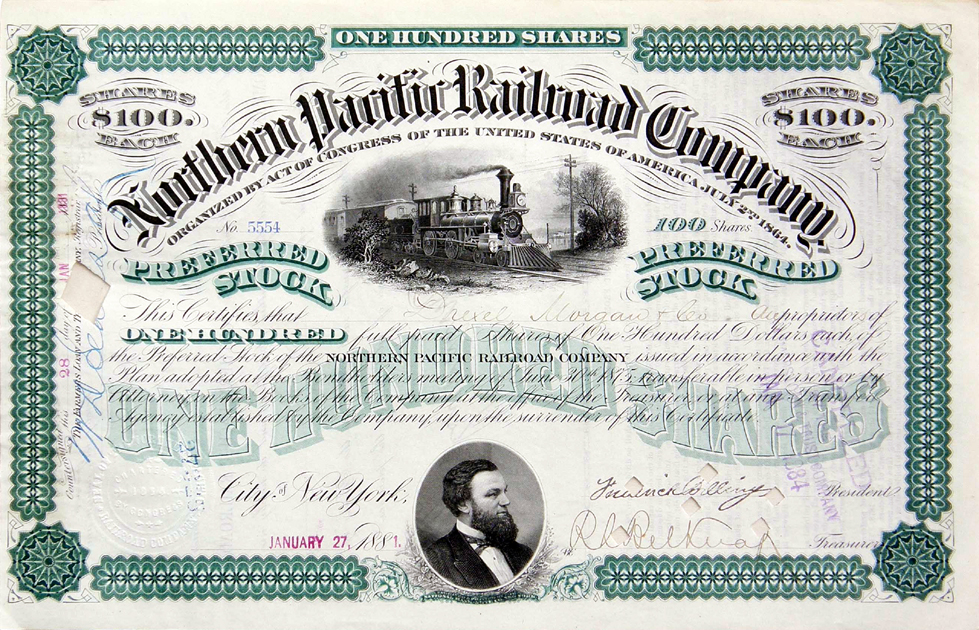 ONE HUNDRED SHARES
SHARES $100. EACH
SHARES $100. EACH
Northern Pacific Railroad Company,
ORGANIZED BY ACT OF CONGRESS OF THE UNITED STATES OF AMERICA, JULY 2ND 1864.
No. 5554
100 Shares.
PREFERRED STOCK
PREFERRED STOCK
This Certifies, that Drexel Morgan & Co. are proprietors of
ONE HUNDRED full paid Shares of One Hundred Dollars each, of
the Preferred Stock of the NORTHERN PACIFIC RAILROAD COMPANY issued in accordance with the
Plan adopted at the Bondholders meeting of June 30th 1875, transferable in person or by
Attorney on the Books of the Company at the office of the Treasurer or at any Transfer
Agency established by the Company, upon the surrender of this Certificate.
ONE HUNDRED SHARES
City of New York,
JANUARY 27, 1881.
Frederick Billings President
R L Belknap Treasurer
Countersigned this 28 day of JAN 1881
THE FARMERS LOAN AND
CANCELLED